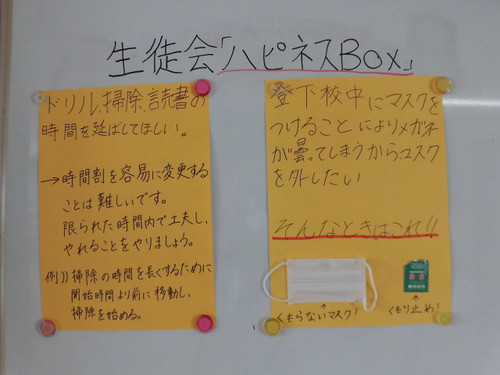 生徒会「ハピネスBox」
ドリル、掃除、読書の
時間を延ばしてほしい。
→時間割を容易に変更する
ことは難しいです。
限られた時間内で工夫し、
やれることをやりましょう。
例)) 掃除の時間を長くするために
開始時間より前に移動し、
掃除を始める。
登下校中にマスクを
つけることによりメガネ
が曇ってしまうからマスク
を外したい
そんなときはこれ!!
↑
くもらないマスク!
↑
くもり止め!